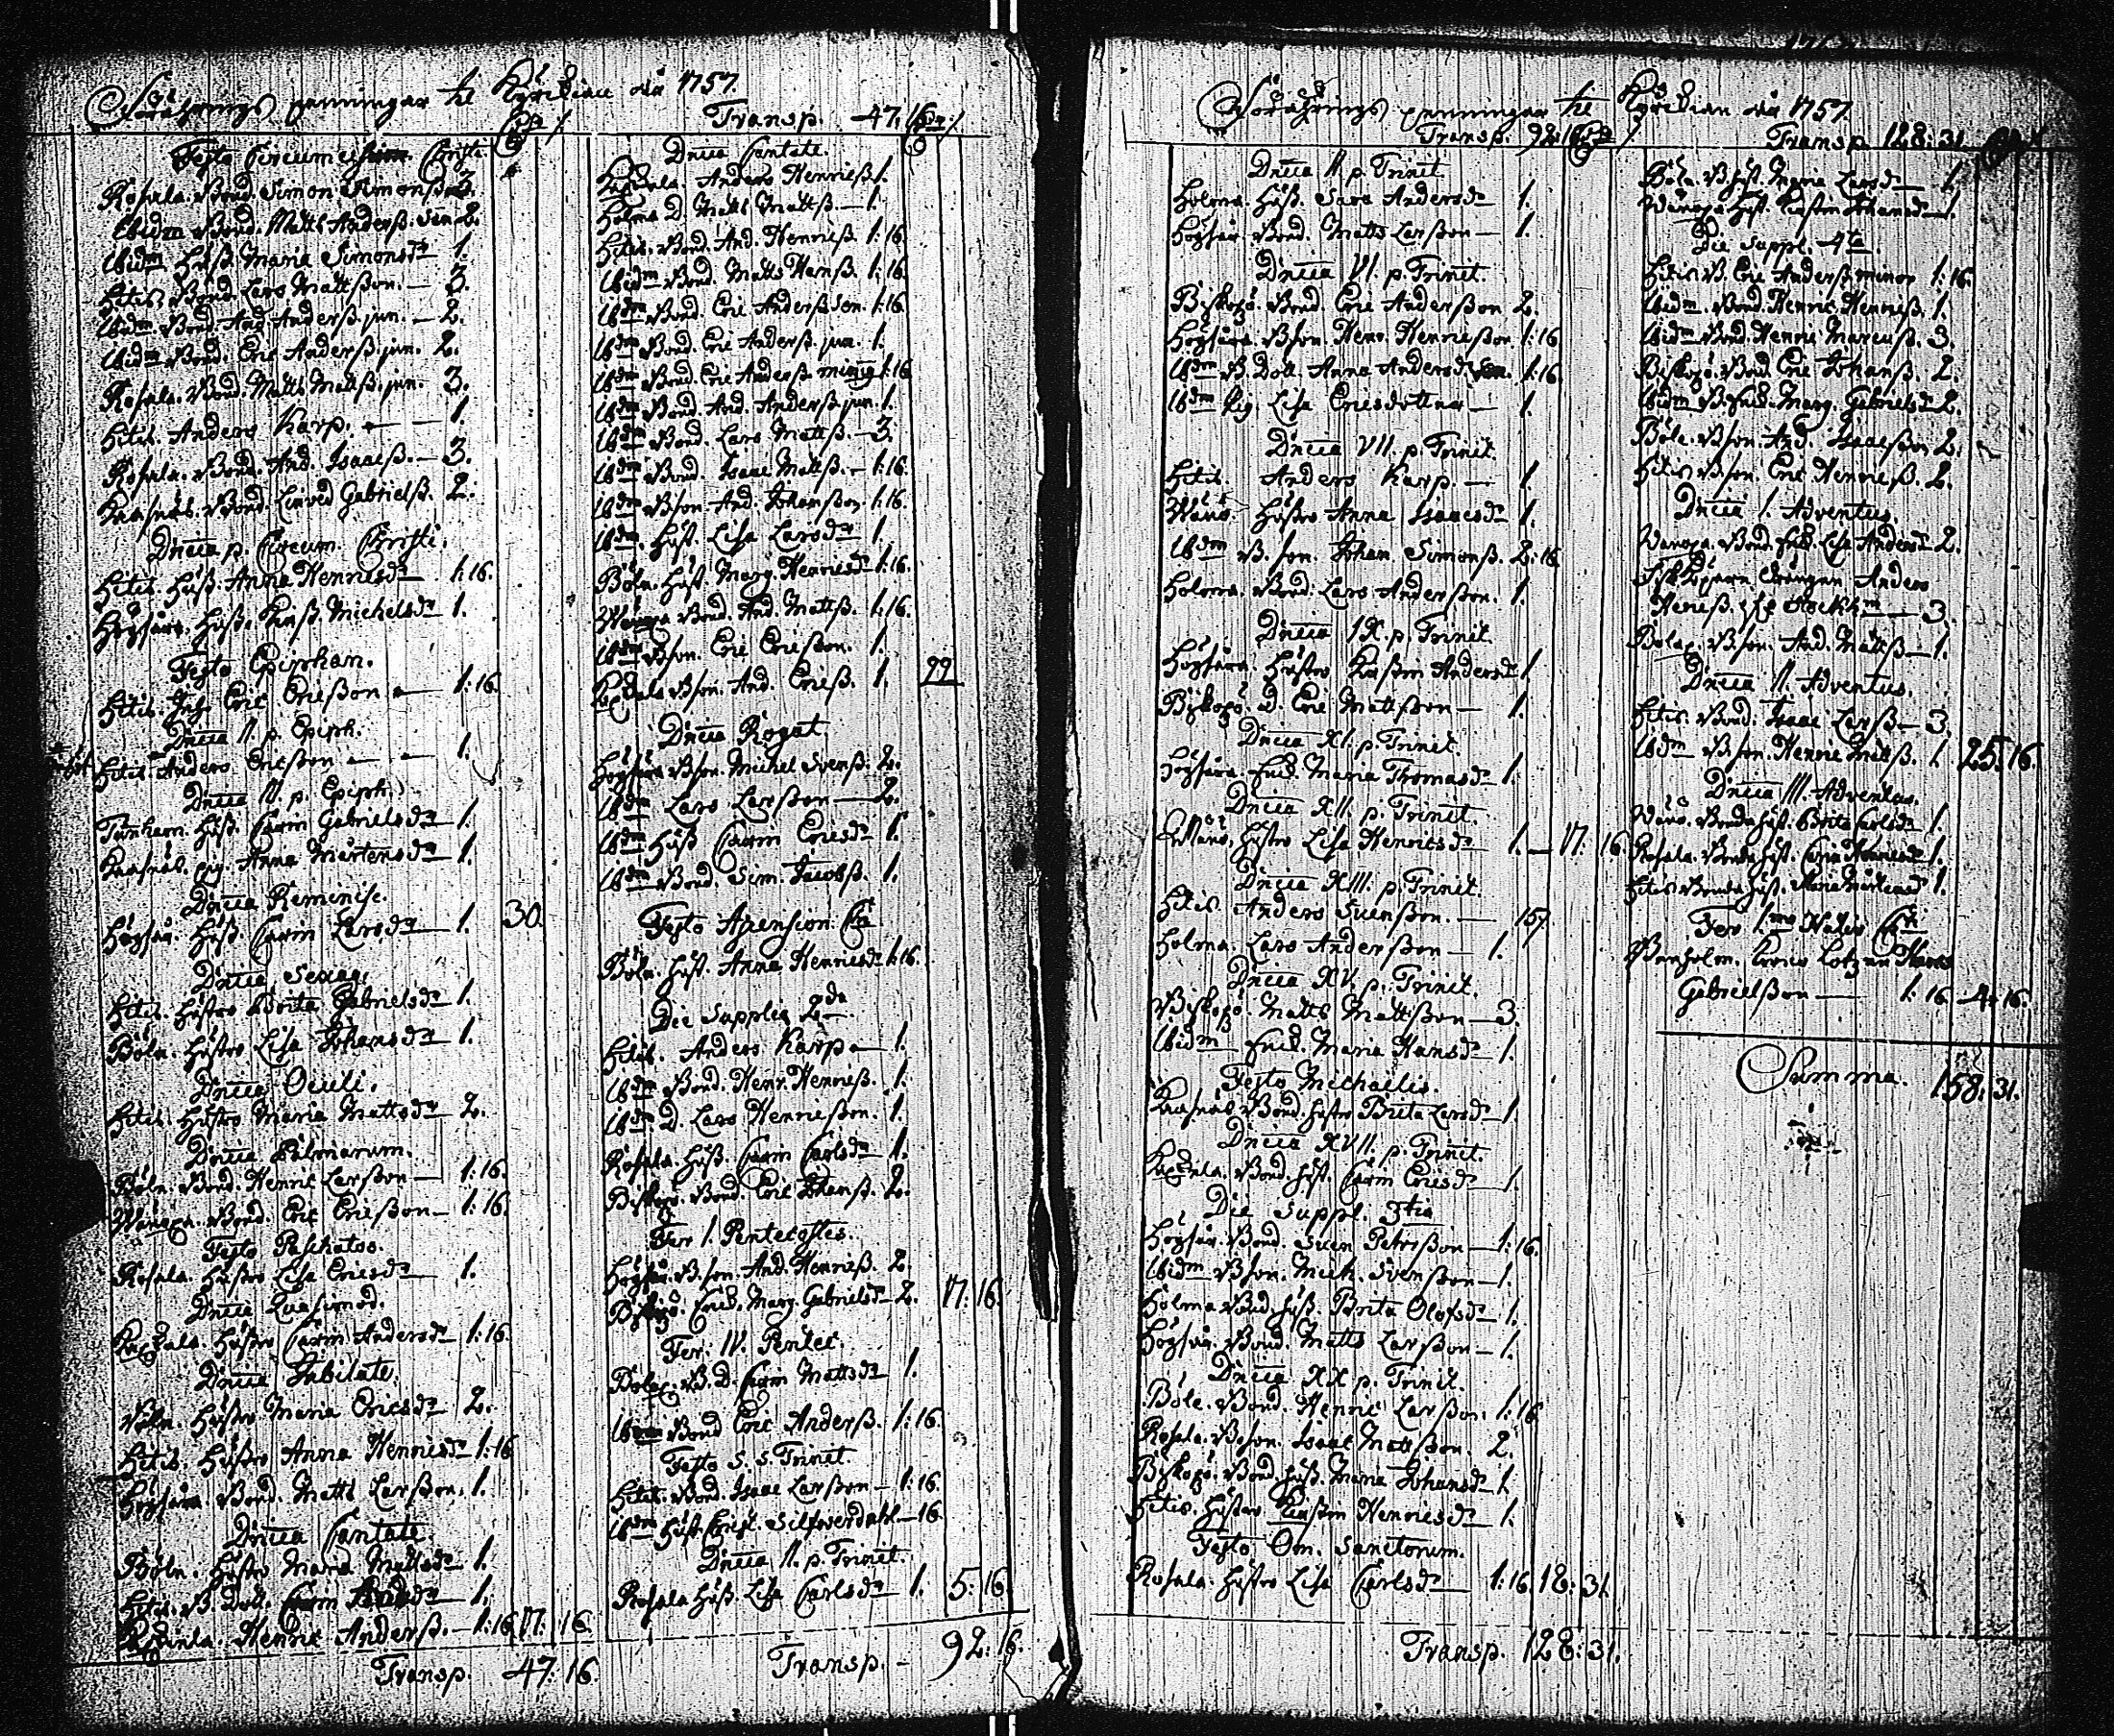 Förährings penningar til Kyrckian åhr 1757.
Festo Circumcision. Christi
Rosala. Bond. Simon Simonss. 3.
Ibidm Bond. Matts Anderss. Sen. 2.
Ibidm Hust. Maria Simonsdr 1.
Hitis. Bond. Lars Mattsson. — 3.
Ibidm Bond. And. Anderss. jun. — 2.
Ibidm Bond. Eric Anderss. jun. 2.
Rosala. Bond. Matts Matss. jun. 3.
Hitis. Anders Karp. — 1.
Rosala. Bond. And. Isaacss. — 3.
Kasnäs. Bond. Gabrielss. 2.
Dnica p. Circum. Christi.
Hitis. Hust. Anna Henricsdr — 1:16.
Högsåra. Hust. Michelsdr 1.
Festo Epiphan.
Hitis. Eric Ericsson — 1:16.
Dnica II. p. Epiph.
Hitis. Anders Ericsson — 1.
Dnica p. Epiph.
Hust. Carin Gabrielsdr 1.
Kasnäs. Anna Mårtensdr 1.
Dnica Reminisc.
Högsår. Hust. Carin Larsdr — 1. 30.
Dnica Sexag.
Hitis. Hustro Brita Gabrielsdr 1.
Böln. Hustro Lisa Johansdr 1.
Dnica Oculi.
Hitis. Hustro Maria Mattsdr 2.
Dnica Palmarum.
Böln. Bond. Henric Larsson — 1:16.
Wänoxa. Bond. Eric Ericsson — 1:16.
Festo Paschatos.
Rosala. Hustro Lisa Ericsdr — 1.
Dnica Quasimod.
Hustro Carin Andersdr — 1:16.
Dnica Jubilate.
Böln. Hustro Maria Ericsdr 2.
Hitis. Hustro Anna Henricsdr 1:16
Högsåra. Bond. Matts Larsson. 1.
Dnica Cantate.
Böln. Hustro Maria Mattsdr 1.
Hitis. B. Dott. Carin 1.
Henric Anderss. — 1:16 17:16.
Transp. 47:16.
Transp. 47.16
Dnica Cantate.
Anders Henricss. 1.
Holma D. Matts Mattss. — 1.
Hitis. Bond. And. Henricss. 1:16
Ibidm Bond. Matts Hanss. 1:16.
Ibdm Bond. Eric Anderss Sen. 1:16
Ibdm Bond. Eric Anderss. jun. 1.
Ibdm Bond. Eric Anderss. 1:16
Ibdm Bond. And. Anderss jun. 1.
Ibdm Bond. Lars Mattss. — 3.
Ibdm Bond. Isaac Mattss. — 1:16.
Ibdm Bson. And. Johansson. 1:16.
Ibdm. Hust. Lisa Larsdr 1.
Böln. Hust. Marg. Henricsdr 1:16.
Wänoxa Bond. And. Mattss. 1:16.
Ibdm Bson. Eric Ericsson. 1.
Bson. And. Ericss. 1. 22
Dnica Rogat.
Högsåra Bson. Michel Svenss. 2.
Ibdm Lars Larsson — 2.
Ibdm Hust Carin Ericsdr 1.
Ibdm Bond. Sim. Jacobss. 1.
Festo Ascension. Chr.
Böln. Hust. Anna Henricsdr 1:16.
Die Supplic. 2da
Hitis. Anders Karp — 1.
Ibdm Bond. Henr. Henricss. 1.
Ibdm D. Lars Henricsson. 1.
Rosala. Hust. Carin Carlsdr 1.
Biskopsö. Bond. Eric Johanss. 2.
Fer. I. Pentecostes.
Högsår. B. son. And. Henricss. 2.
Biskopsö. Enck. Marg. Gabrielsdr 2. 17:16.
Fer. IV. Pentec.
Bolax. B. D. Carin Mattsdr 1.
Ibm Bond Eric Anderss. 1:16.
Festo S. S. Trinit.
Hitis. Bond. Isaac Larsson — 1:16.
Ibdm Hust. Christ. Silfwerdahl — 16.
Dnica II. p. Trinit.
Rosala Hust. Lisa Carlsdr 1. 5:16.
Transp. — 92:16.
Förährings penningar til Kyrckian åhr 1757.
Transp. 92:16
Dnica II. p. Trinit
Holma. Hust. Sara Andersdr 1.
Högsår. Bond. Matts Larsson — 1.
Dnica VI. p. Trinit.
Biskopsö. Bond. Eric Andersson 2.
Högsåra. Bson. Henr. Henricsson 1:16
Ibdm B. Dott. Anna Andersdr 1:16.
Ibdm Pig. Lisa Ericsdotter — 1.
Dnica VII. p. Trinit.
Hitis. Anders Karp. — 1.
Wänö. Hustro Anna Isaacsdr 1.
Ibdm B. son. Johan Simonss. 2:16
Holma. Bond. Lars Andersson. 1.
Dnica IX. p. Trinit.
Högsåra. Hustro Kirstin Andersdr 1.
Biskopsö. D. Eric Mattsson — 1.
Dnica XI. p. Trinit.
Högsåra. Enck. Maria Thomasdr 1.
Dnica XII. p. Trinit.
Hustro Lisa Henricsdr 1. — 17:16.
Dnica XIII. p. Trinit.
Hitis Anders Svensson. — 15
Holma. Lars Andersson — 1.
Dnica XV. p. Trinit.
Biskopsö. Matts Mattsson — 3.
Ibidm Enck. Maria Hansdr 1.
Festo Michaelis.
Kasnäs Bond. Hustro Brita Larsdr 1.
Dnica XVII. p. Trinit.
Bond. Hust. Carin Ericsdr 1.
Die Suppl. 3tia
Högsår. Bond. Sven Petersson — 1:16.
Ibidm Bson. Mich. Svensson — 1.
Holma Bond. Hust. Brita Olofsdr 1.
Högsår. Bond. Matts Larsson — 1.
Dnica XX p. Trinit.
Böle. Bond. Henric Larsson 1:16
Rosala. Bson. Isaac Mattsson. 2.
Biskopsö. Bond. Hust. Maria Johansdr 1.
Hitis. Hustro Kirstin Henricsdr 1.
Festo Om. Sanctorum.
Rosala. Hustro Lisa Carlsdr — 1:16. 18:31.
Transp. 128:31.
Transp. 128:31
Böln. B. Hust. Maria Larsdr — 1.
Wänoxa Hust. Kirstin Johansdr 1.
Die Suppl. 4ta.
Hitis. B. Eric Anderss minor 1:16.
Ibidm. Bond. Henric Henricss. 1.
Ibidm Bond. Henric Marcuss. 3.
Biskopsö. Bond. Eric Johanss. 2.
Ibidm B. Enck. Marg. Gabrielsdr 2.
Böle. Bson. And. Isaacsson 2.
Hitis. Bson. Eric Henricss. 2.
Dnica I. Adventus
Wänoxa. Bond. Lisa Andersdr 2.
drängen Anders
Henricss. Stockh:m — 3.
Bolax. Bson. And. Mattss — 1.
Dnica II. Adventus.
Hitis. Bond. Isaac Larss — 3.
Ibdm B. son. Henric Mattss. 1. 25:16.
Dnica III. Adventus.
Wänö. Bonde Hust. Brita Carlsdr 1.
Rosala. Bonde Hust. Carin Hansdr 1.
Hitis Bonde Hust. Maria Mårtensdr 1.
Fer. I.ma Natiu. Chri
Lotzen Hans
Gabrielsson — 1:16 4:16.
Summa. 158:31.